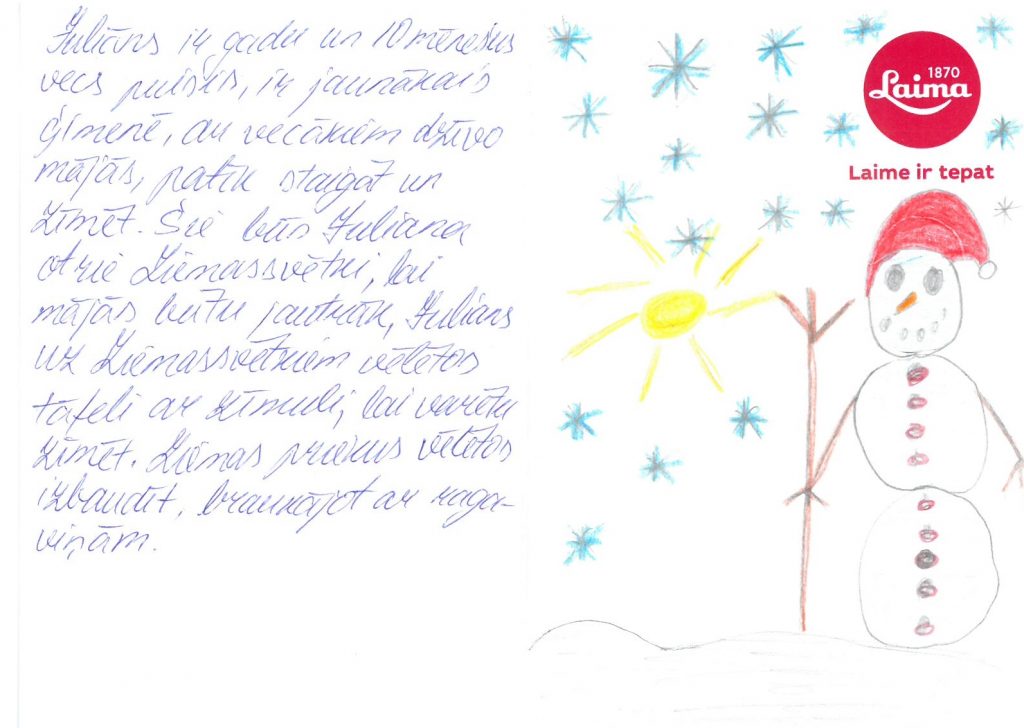 Juliāns ir gadu un 10 mēnešus
vecs puisis, ir jaunākais
ģimenē, ar vecākiem dzīvo
mājās, patīk staigāt un
zīmēt. Šie būs Juliana
otrie Ziemassvētki, lai
mājās būtu jautrāk, Juliāns
uz Ziemassvētkiem vēlētos
tāfeli ar zīmuli, lai varētu
zīmēt. Ziemas priekus vēlētos
izbaudīt, braukājot ar raga-
viņām.
1870
Laima
Laime ir tepat